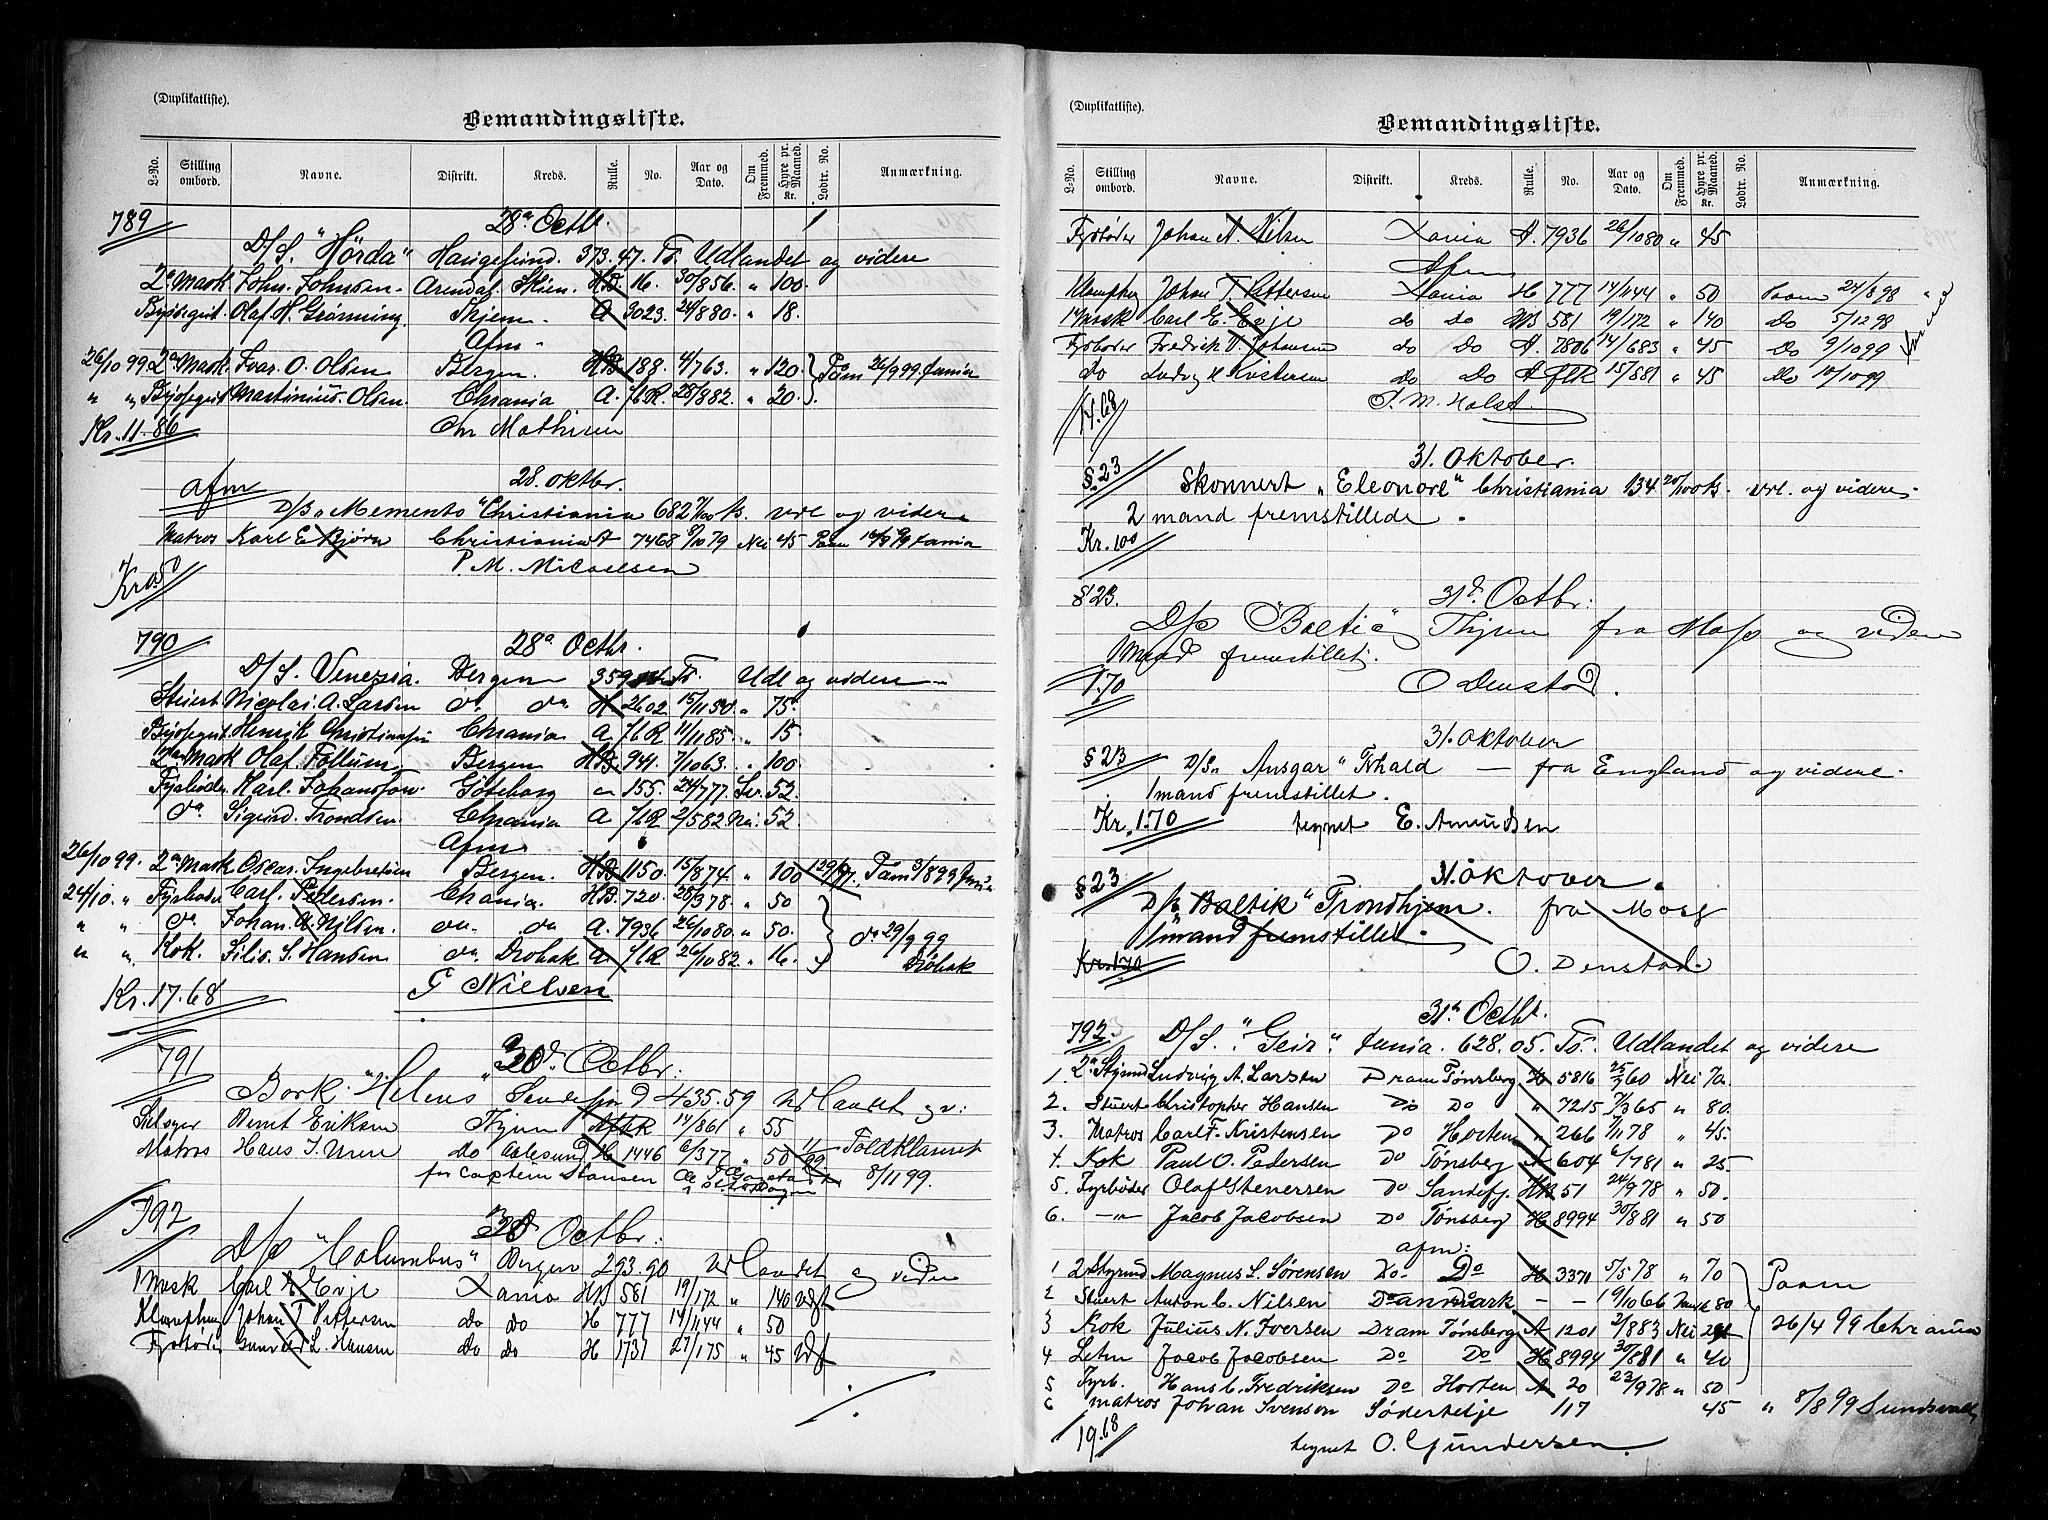 (Duplikatliste).
Bemandingsliste.
L-No. Stilling ombord. Navne. Distrikt. Kreds. Rulle. No. Aar og Dato. Om Fremmed. Hyre pr. Maaned. Kr. Lodtr. No. Anmærkning.
789 28a Octbr.
D/S. "Hörda" Haugesund. 373.47. Ts. Udlandet og videre
2a Mask. John. Johnsen. Arendal. Skien. HB. 16. 30/856. " 100.
Byssegut. Olaf H. Grönning. Thjem. A 3023. 24/880. " 18.
Afm.
26/10 99. 2a Mask. Ivar. O. Olsen Bergen. HB. 188. 4/763. " 120. Paam 26/9 99 Xania
" " Byssegut Martinius. Olsen. Chrania A. flR. 28/882. " 20.
Kr. 11.86 Chr Mathisen
afm 28. oktbr.
D/s " Memento "Christiania 682 71/100 ts. Udl og videre
Matros Karl E Björn Christiania A 7468 9/10 79 Nei 45 Paam Xania
Kr 0.50 P. M. Micaelsen
790 28a Octbr.
D/S. Venezia. Bergen 359 Ts. Udl og videre
Stuert Nicolai. A. Larsen do do H. 2602 15/11 50. " 75.
Byssegut Henrik Christiansen Chrania. A. flR 11/11 85. " 15.
2a Mask Olaf. Follum. Bergen HB. 941. 7/10 63. " 100.
Fyrböder Karl. Johansson. Göteborg " 155. 24/777. Sv. 52.
do Sigurd. Trondsen. Chrania A. flR 2/582. Nei. 52
Afm.
26/10 99. 2a Mask Oscar. Ingebretsen Bergen. HB. 1150. 15/874. " 100 129/97. Paam 3/8 93 Xania
24/10. " Fyrböder Carl. Pettersen. Chania. HB. 720. 28/378. " 50
" " do Johan. A. Nilsen. do. do A. 7936 26/10 80. " 50. do 29/9 99
" " Kok. Silio. S. Hansen do. Dröbak A. flR 26/10 82. " 16. Dröbak
Kr. 17.68 G Nielsen
791 30d Octbr.
Bark "Helens" Sandefjord 435.59 Udlandet og v:
Seilsyer Bernt Eriksen Thjem AflR 14/861 " 55
Matros Hans J. Unen do Aalesund H 1446 6/377 " 50 11/99 Toldklareret
for Captein Hansen 8/11 99.
792 30d Octbr:
D/s "Columbus" Bergen 293.90 Udlandet og videre
1 Mask Carl E Evje Xania HB 581 19/172 " 140 Udf
Klampthug Johan T Pettersen do do H 777 14/11 44 " 50
Fyrböder Gunerius L. Hansen do do H 1731 27/175 " 45 Udf
(Duplikatliste).
Bemandingsliste.
L-No. Stilling ombord. Navne. Distrikt. Kreds. Rulle. No. Aar og Dato. Om Fremmed. Hyre pr. Maaned. Kr. Lodtr. No. Anmærkning.
Fyrböder Johan A. Nilsen Xania A. 7936 26/10 80 " 45
Afm
Klampthug Johan T. Pettersen Xania H 777 14/11 44 " 50 Paam 24/8 98
1 Mask Carl E. Evje do Do HB 581 19/172 " 140 Do 5/12 98
Fyrböder Fredrik V. Johansen do Do A. 2806 14/683 " 45 Do 9/10 99
do Ludvig H Kristensen Do Do A flR 15/881 " 45 Do 10/10 99
14.68 P. M. Holst
31. Oktober.
§.23 Skonnert "Eleonore" Christiania 134 20/100 ts. Udl. og videre.
2 mand fremstillede.
Kr. 100
§ 23. 31d Octbr:
D/s "Baltic" Thjem fra Moss og videre
1 Mand fremstillet.
1.70 O Denstad.
31. Oktober
§ 23 D/S. "Ansgar" Fhald — fra England og videre.
1 mand fremstillet.
Kr. 1.70 tegnet E. Amundsen
31. Oktober.
§ 23 D/s "Baltik" Trondhjem. fra Moss
1 mand fremstillet.
Kr. 1.70 O. Denstad.
31a Octbr.
793. D/S. "Geir." Xania. 628.05. Ts. Udlandet og videre
1. 2a Styrmd Ludvig A. Larsen Dram Tönsberg H 5816 25/2 60 Nei 70.
2. Stuert Christopher Hansen Do Do " 7215 7/3 65 " 80.
3. Matros Carl F. Kristensen Do Horten " 266 7/11 78 " 45.
4. Kok Paul O. Pedersen Do Tönsberg A 604 6/781 " 25.
5. Fyrböder Olaf Stenersen Do Sandefj. HB 51 24/978 " 50.
6. —"— Jacob Jacobsen Do Tönsberg H 8994 30/881 " 50
afm:
1 2 Styrmd Magnus L. Sörensen Do Do H 3371 5/5 78 " 70 Paam
2 Stuert Anton C. Nilsen Danmark — — 19/10 66 Dansk 80
3 Kok Julius N. Iversen Dram Tönsberg A 1201 2/883 Nei 26/4 99 Chrania
4 Letm Jacob Jacobsen Do Do H 8994 30/881 " 40
5 Fyrb. Hans C. Fredriksen Do Horten A 20 23/978 " 50
6 matros Johan Svenson Södertelje 117 45 " 8/8 99 Sundsvall
19.68 tegnet O. Gundersen.